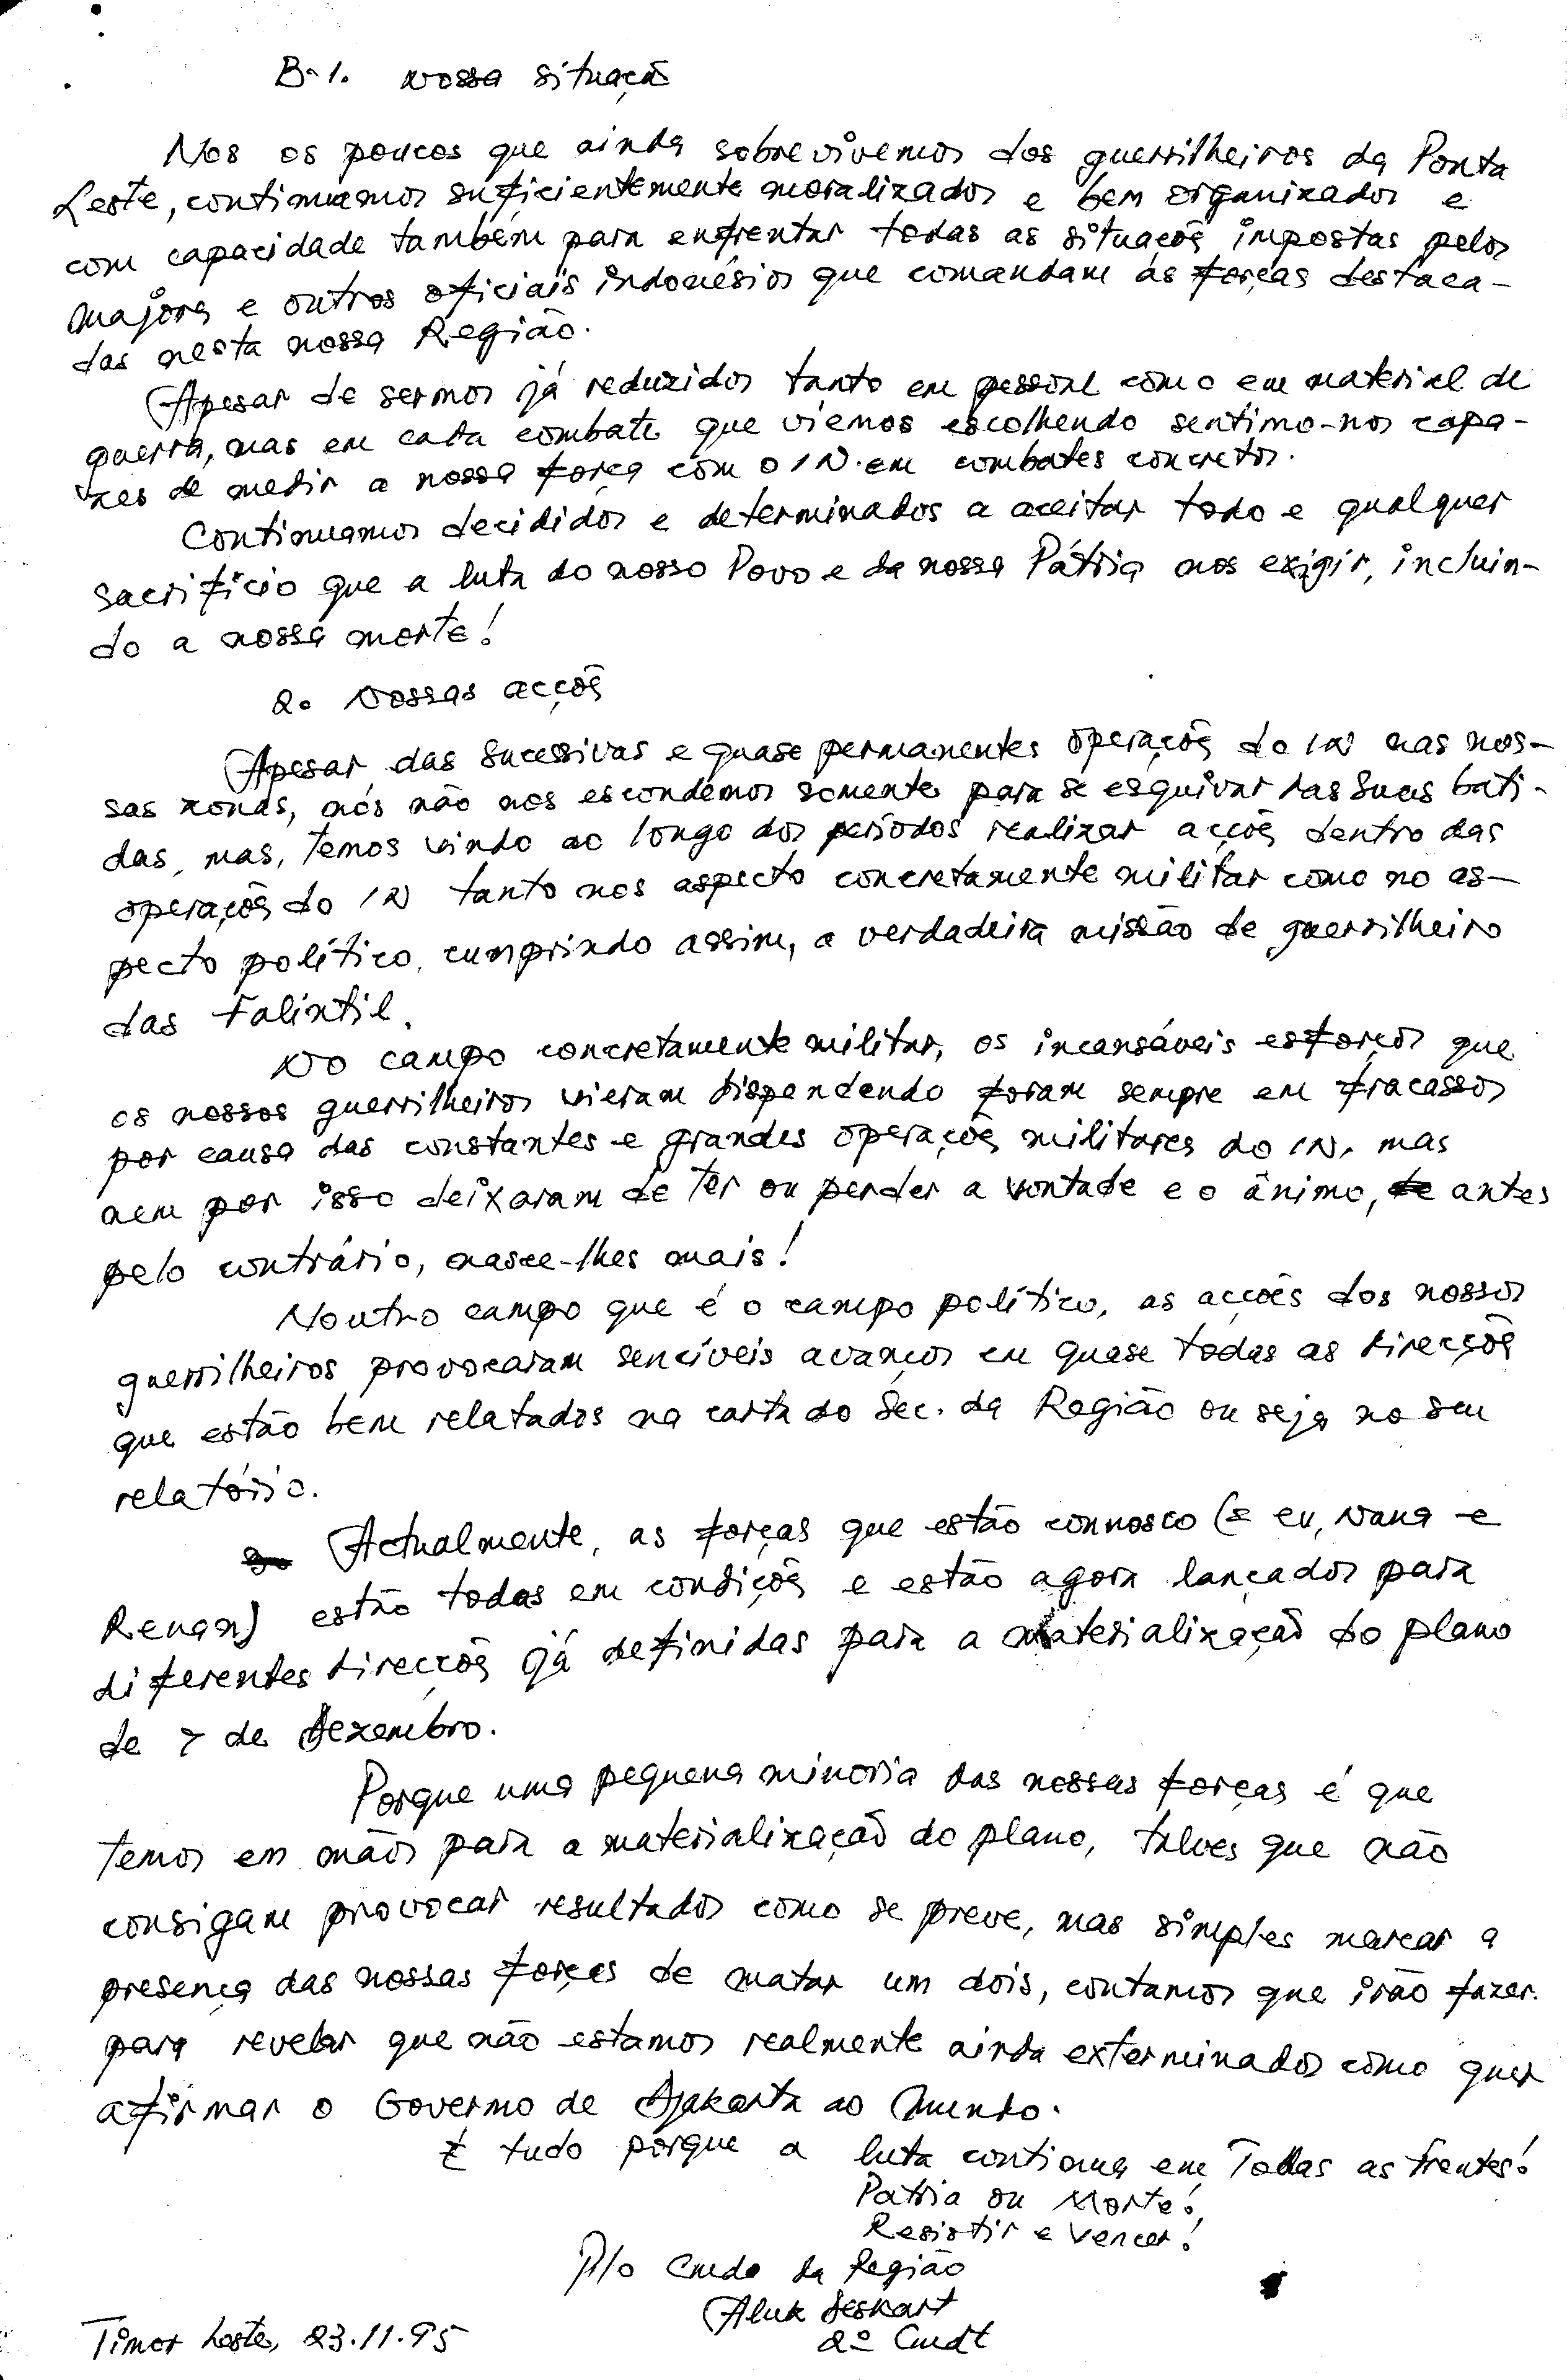 B-1. Nossa situaçã
Nos os poucos que ainda sobrevivemos dos guerrilheiros da Ponta
Leste, continuamos suficientemente moralizados e bem organizados e
com capacidade também para enfrentar todas as situaçõs impostas pelos
majores e outros oficiais indonésios que comandam as forças destaca-
das nesta nossa Região.
Apesar de sermos já reduzidos tanto em pessoal como em material de
guerra, mas em cada combate que viemos escolhendo sentimo-nos capa-
zes de medir a nossa força com o IN. em combates concretos.
Continuamos decididos e determinados a aceitar todo e qualquer
sacrifício que a luta do nosso Povo e da nossa Pátria nos exigir, incluin-
do a nossa morte!
2. Nossas acçõs
Apesar das sucessivas e quase permanentes operaçõs do IN nas nos-
sas zonas, nós não nos escondemos somente para se esquivar das suas bati-
das, mas, temos vindo ao longo dos períodos realizar acçõs dentro das
operaçõs do IN tanto nos aspecto concretamente militar como no as-
pecto político, cumprindo assim, a verdadeira missão de guerrilheiro
das Falintil.
No campo concretamente militar, os incansáveis esforços que
os nossos guerrilheiros vieram dispendendo foram sempre em fracassos
por causa das constantes e grandes operaçõs militares do IN, mas
nem por isso deixaram de ter ou perder a vontade e o ânimo, de antes
pelo contrário, nasce-lhes mais!
Noutro campo que é o campo político, as acções dos nossos
guerrilheiros provocaram sencíveis avanços em quase todas as direcçõs
que estão bem relatados na carta do Sec. da Região ou seja no seu
relatório.
Actualmente, as forças que estão connosco (= eu, Nana e
Renan) estão todas em condiçõs e estão agora lançados para
diferentes direcçõs já definidas para a materializaçaõ do plano
de 7 de Dezembro.
Porque uma pequena minoria das nossas forças é que
temos em mãos para a materializaçaõ do plano, talves que não
consigam provocar resultados como se preve, mas simples marcar a
presença das nossas forças de matar um dois, contamos que irão fazer.
para revelar que não estamos realmente ainda exterminados como quer
afirmar o Governo de Djakarta ao Mundo.
É tudo porque a luta continua em Todas as frentes!
Patria ou Morte!
Resistir e Vencer!
P/o Cmdo da Região
Aluk Deskart
2º Cmdt
Timor Leste, 23.11.95